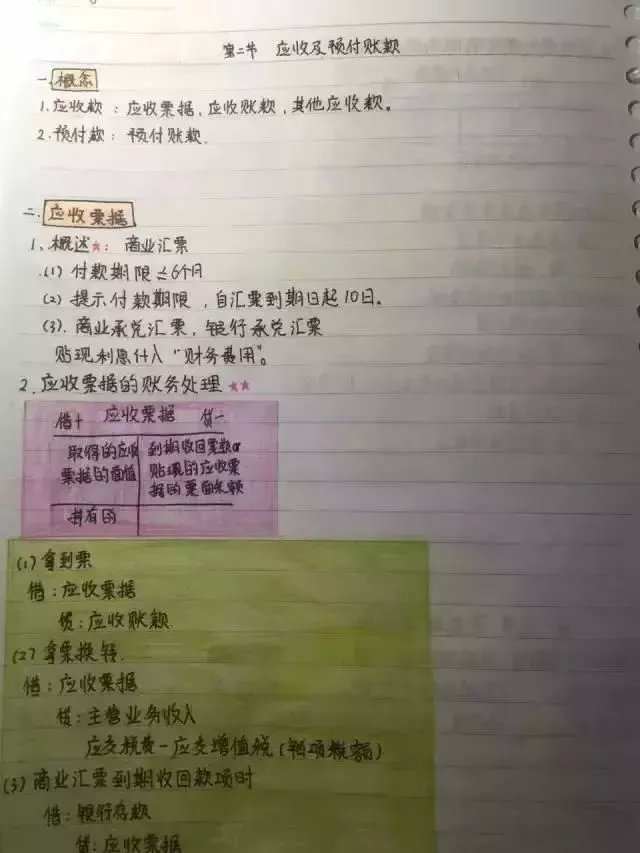 第二节 应收及预付账款
一.概念
1.应收款：应收票据，应收账款，其他应收款。
2.预付款：预付账款.
二.应收票据
1、概述★：商业汇票
(1) 付款期限≤6个月
(2) 提示付款期限，自汇票到期日起10日。
(3). 商业承兑汇票，银行承兑汇票
贴现利息付入“财务费用”。
2.应收票据的账务处理★★
借+ 应收票据 贷一
取得的应收
票据的面值
到期收回票款or
贴现的应收票
据的票面余额
持有的
(1)拿到票
借：应收票据
贷：应收账款
(2)拿票换钱.
借：应收票据
贷：主营业务收入
应交税费－应交增值税（销项税额）
(3)商业汇票到期收回款项时
借：银行存款
贷：应收票据